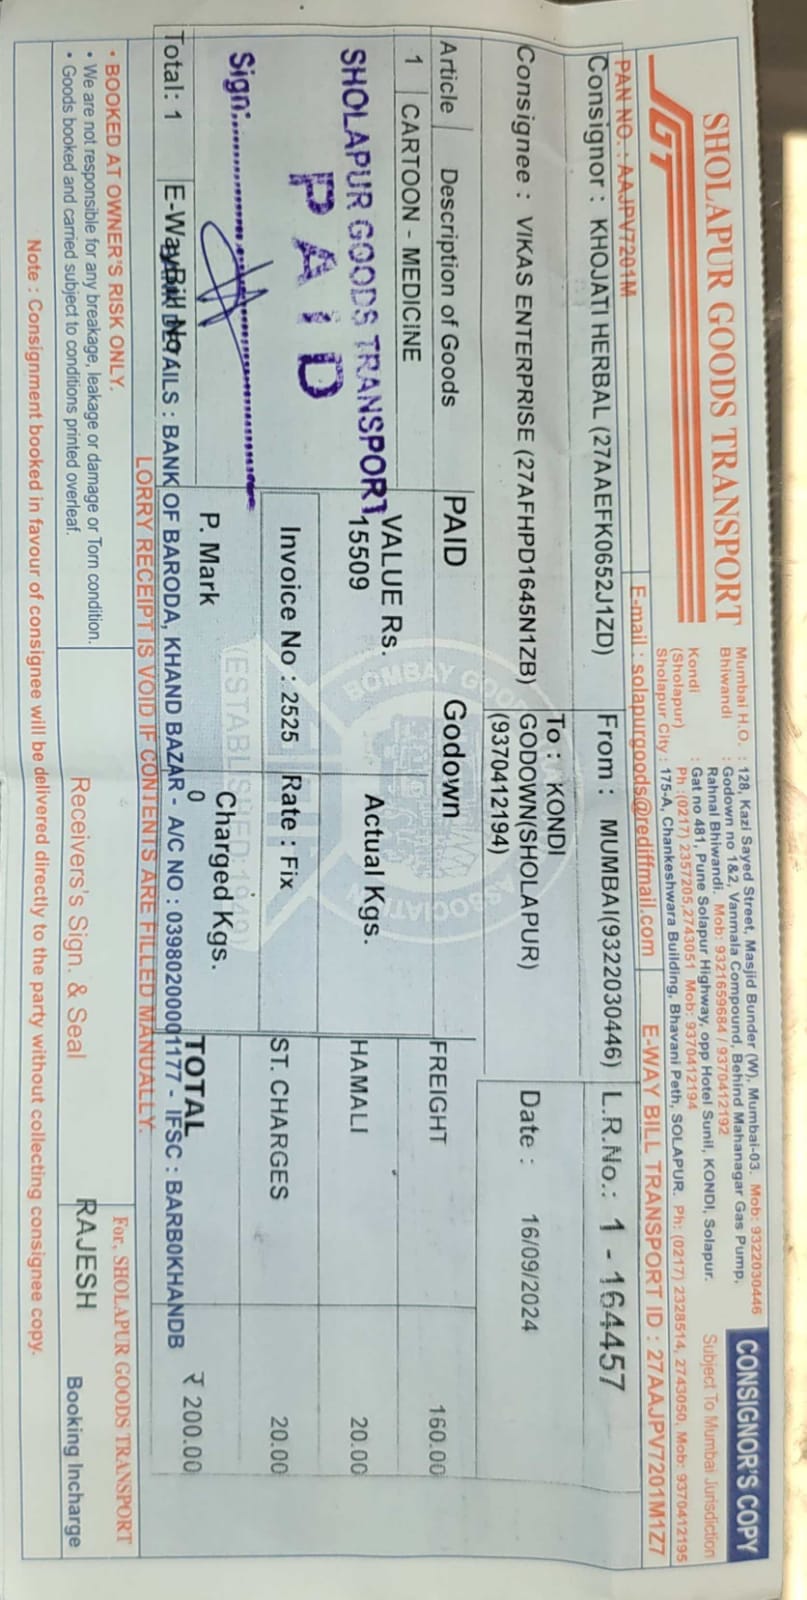 SHOLAPUR GOODS TRANSPORT
SGT
Mumbai H.O. : 128, Kazi Sayed Street, Masjid Bunder (W), Mumbai-03. Mob: 9322030446
Bhiwandi : Godown no 1&2, Vanmala Compound, Behind Mahanagar Gas Pump,
Rahnal Bhiwandi. Mob: 9321659684 / 9370412192
Kondi : Gat no 481, Pune Solapur Highway, opp Hotel Sunil, KONDI, Solapur.
(Sholapur) Ph : (0217) 2357205,2743051 Mob: 9370412194
Sholapur City : 175-A, Chankeshwara Building, Bhavani Peth, SOLAPUR. Ph: (0217) 2328514, 2743050, Mob: 9370412195
CONSIGNOR'S COPY
Subject To Mumbai Jurisdiction
PAN NO. : AAJPV7201M
E-mail : solapurgoods@rediffmail.com
E-WAY BILL TRANSPORT ID : 27AAJPV7201M1Z7
Consignor : KHOJATI HERBAL (27AAEFK0652J1ZD)
From : MUMBAI(9322030446)
L.R.No.: 1 - 164457
Consignee : VIKAS ENTERPRISE (27AFHPD1645N1ZB)
To : KONDI
GODOWN(SHOLAPUR)
(9370412194)
Date : 16/09/2024
Article Description of Goods PAID Godown
1 CARTOON - MEDICINE
VALUE Rs.
15509
Actual Kgs.
Invoice No : 2525 Rate : Fix
P. Mark
Charged Kgs.
0
FREIGHT 160.00
HAMALI 20.00
ST. CHARGES 20.00
TOTAL ₹ 200.00
SHOLAPUR GOODS TRANSPORT
PAID
Sign:
BOMBAY GOODS ASSOCIATION
(ESTABLISHED:1940)
Total: 1 E-WayBill No
BANK DETAILS : BANK OF BARODA, KHAND BAZAR - A/C NO : 03980200001177 - IFSC : BARB0KHANDB
LORRY RECEIPT IS VOID IF CONTENTS ARE FILLED MANUALLY.
• BOOKED AT OWNER'S RISK ONLY.
• We are not responsible for any breakage, leakage or damage or Torn condition.
• Goods booked and carried subject to conditions printed overleaf.
Receivers's Sign. & Seal
For, SHOLAPUR GOODS TRANSPORT
RAJESH
Booking Incharge
Note : Consignment booked in favour of consignee will be delivered directly to the party without collecting consignee copy.